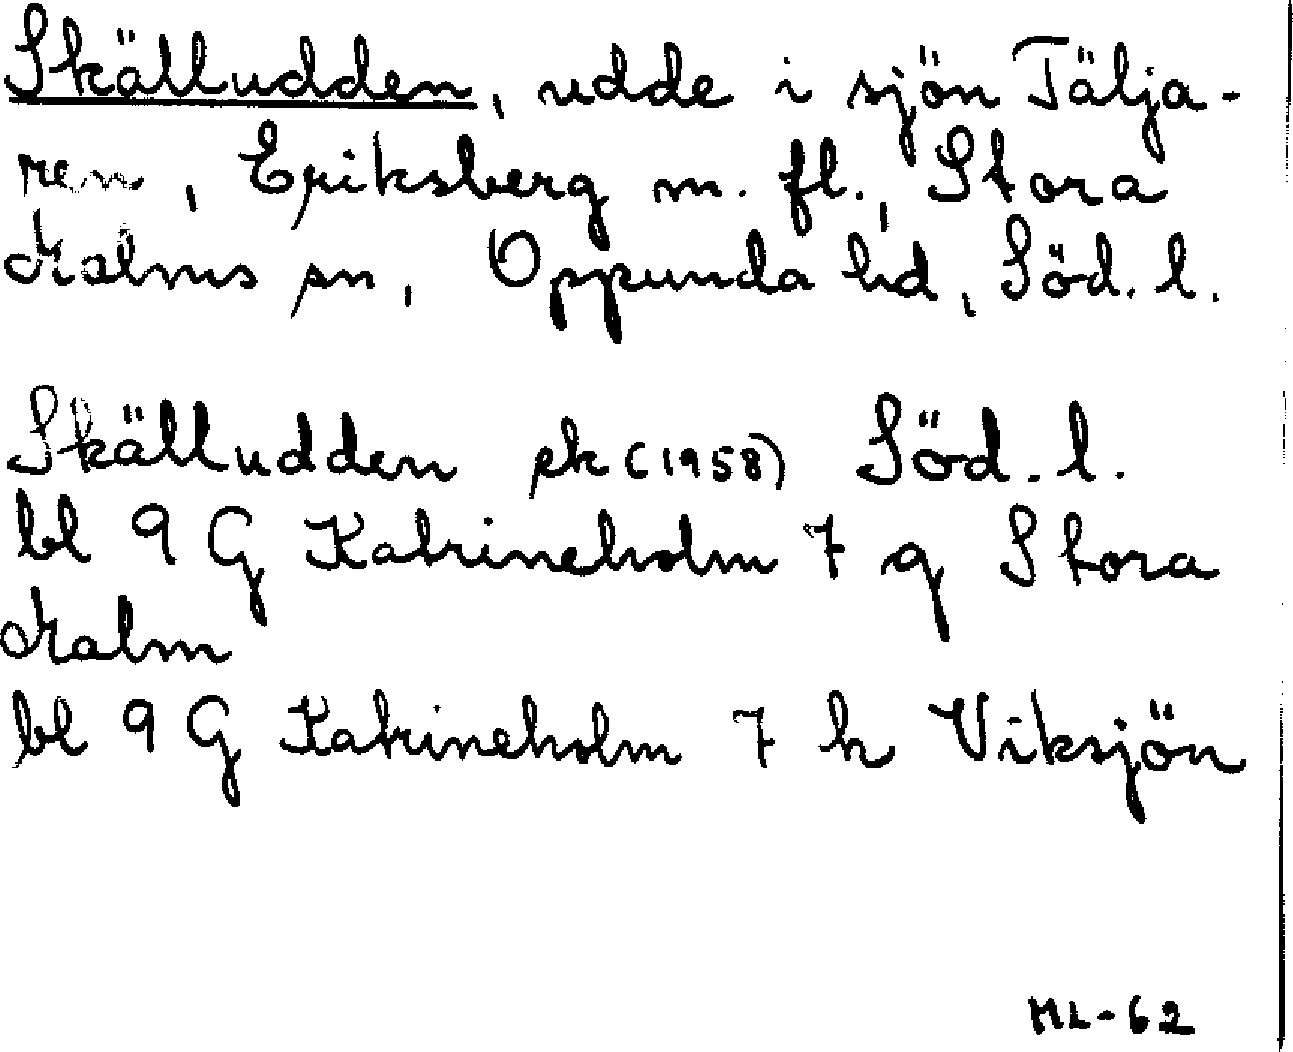 Skälludden, udde i sjön Tälja-
ren, Eriksberg m. fl., Stora
Malms sn, Oppunda hd, Söd. l.
Skälludden ek (1958) Söd. l.
bl 9 G Katrineholm 7 g Stora
Malm
bl 9 G Katrineholm 7 h Viksjön
ML-62